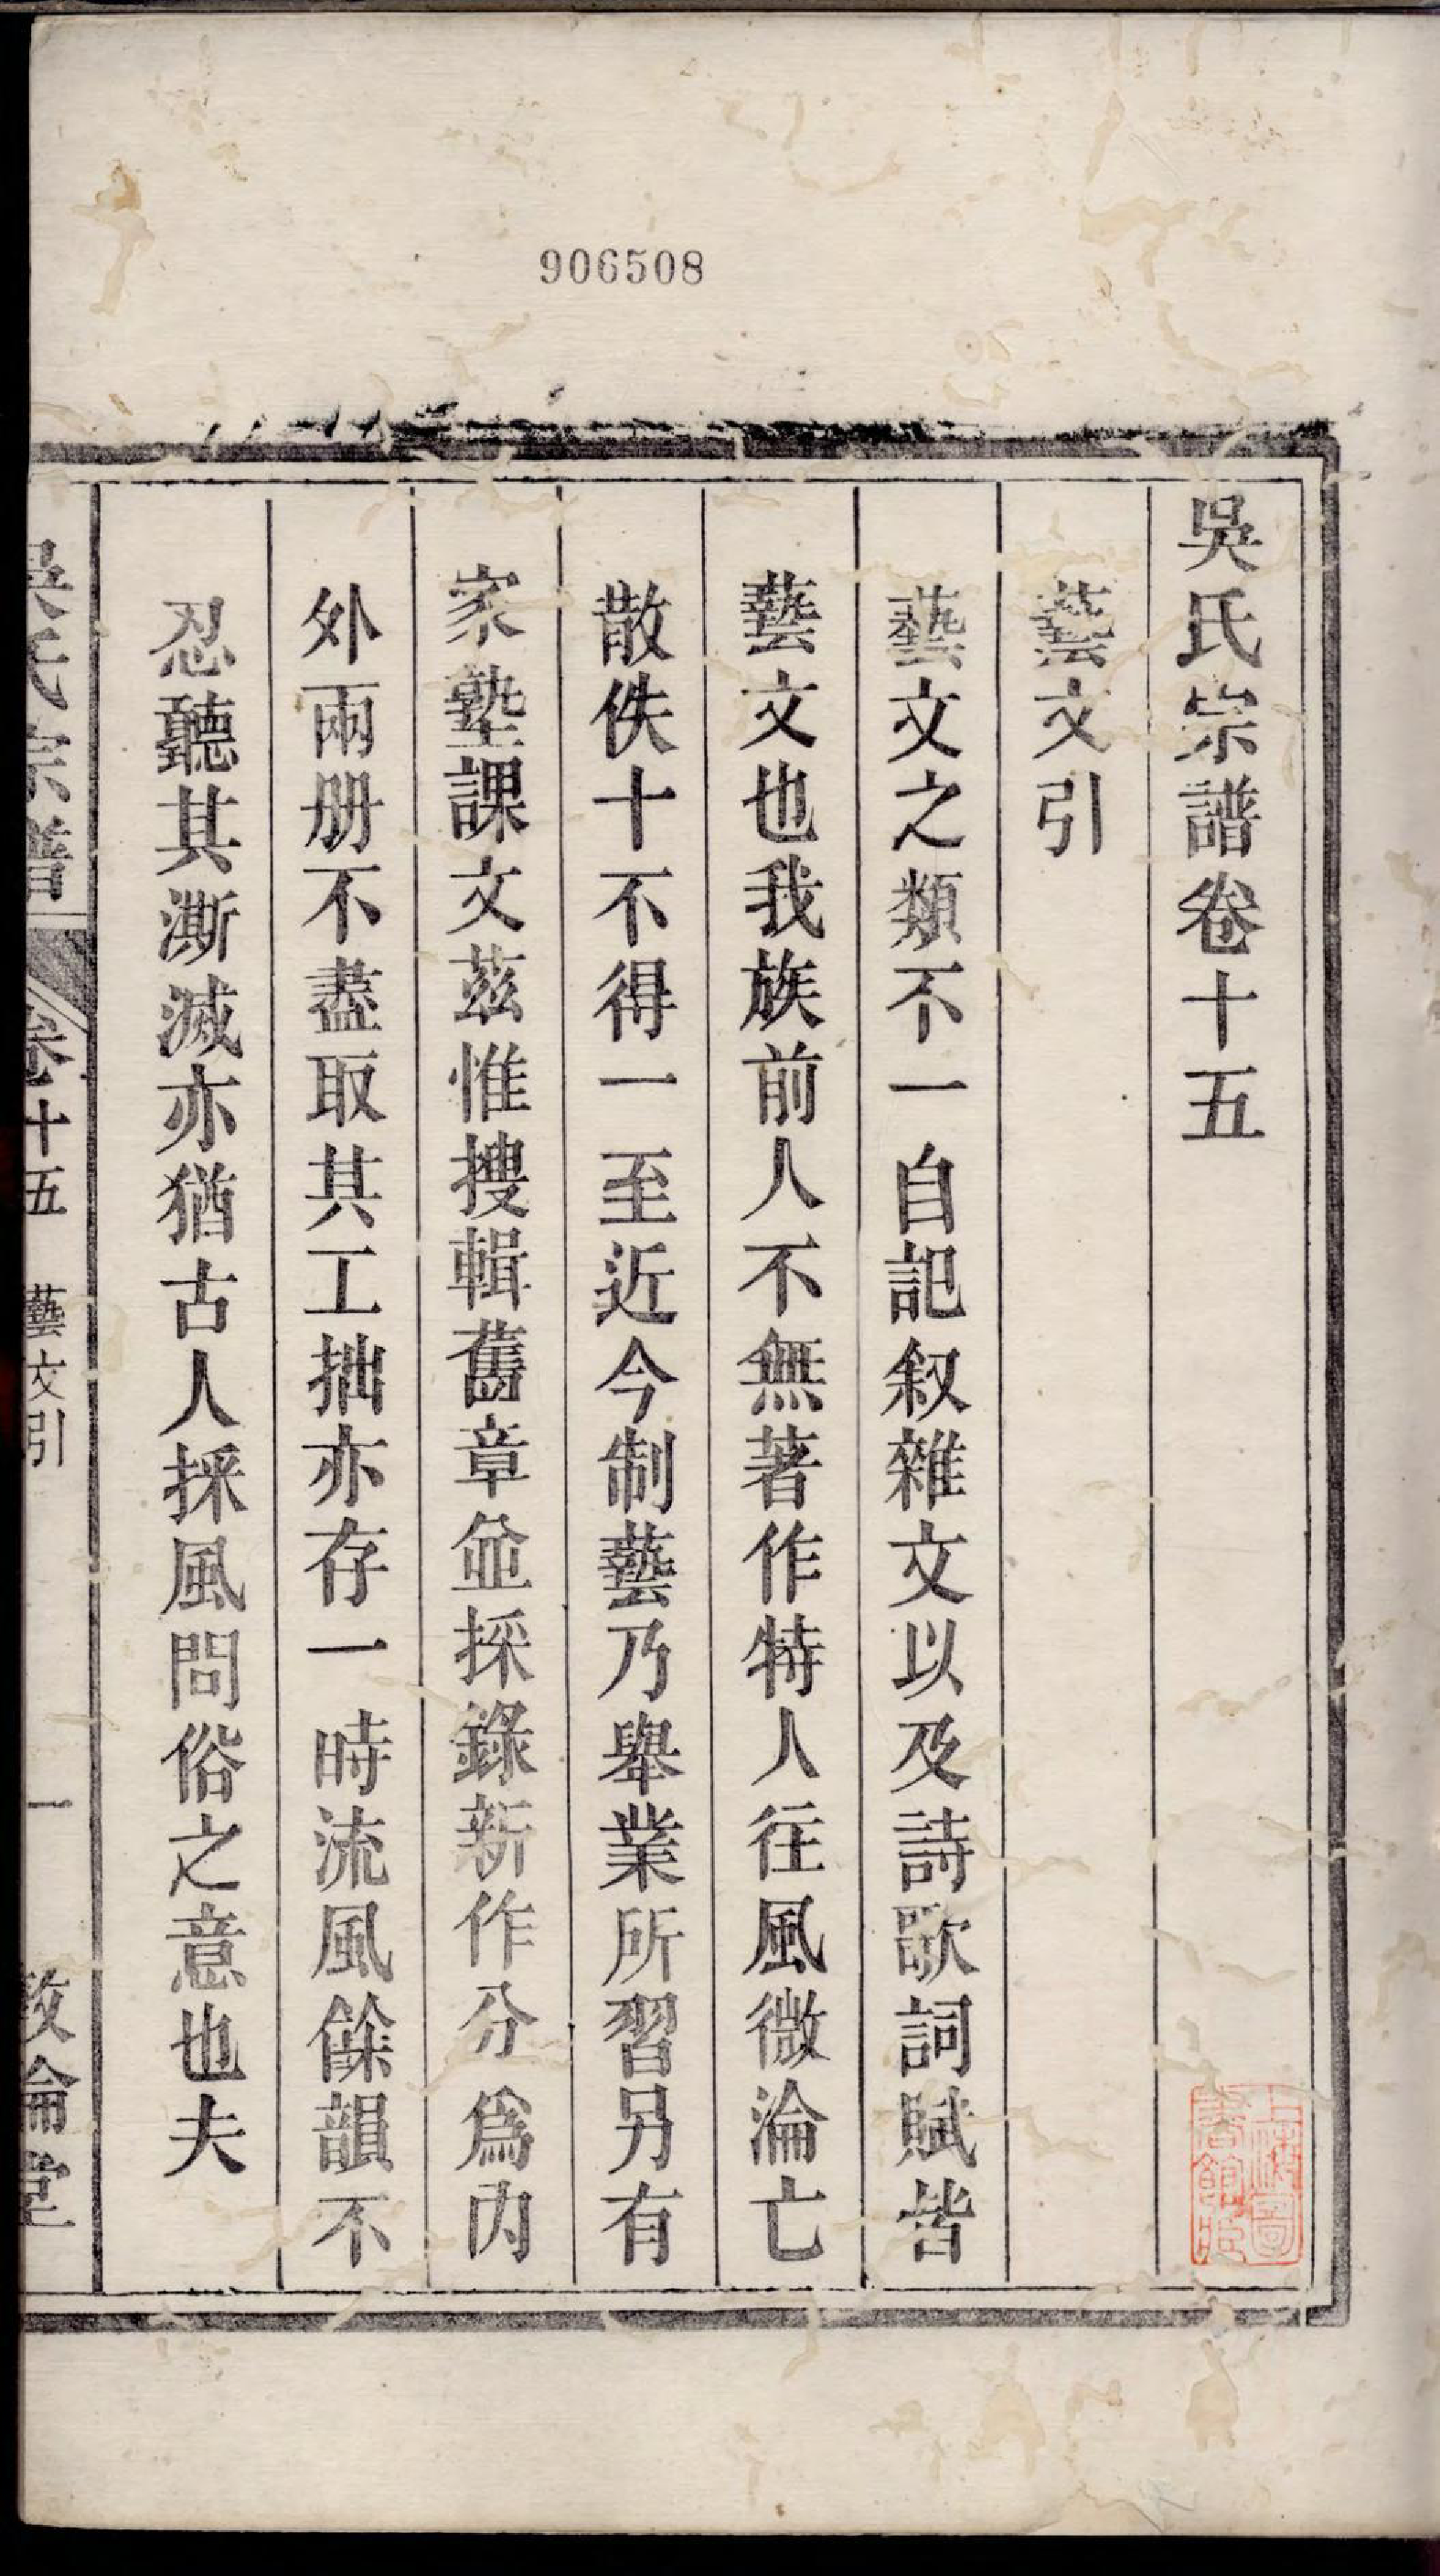 906508
吳氏宗譜卷十五
藝文引
藝文之類不一自記叙雜文以及詩歌詞賦皆
藝文也我族前人不無著作特人往風微淪亡
散佚十不得一至近今制藝乃舉業所習另有
家塾課文茲惟搜輯舊章並採錄新作分爲內
外兩册不盡取其工拙亦存一時流風餘韻不
忍聽其澌滅亦猶古人採風問俗之意也夫
吳氏宗譜 卷十五 藝文引 一 敦倫堂
上海圖書館藏